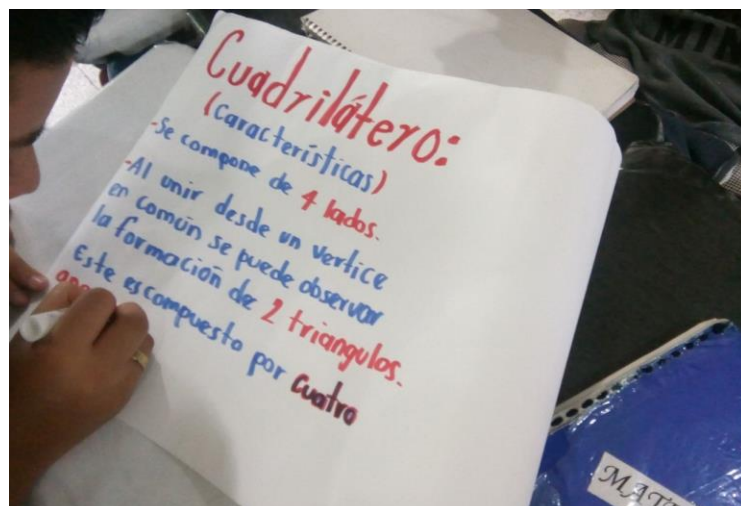 Cuadrilátero:
(Características)
-Se compone de 4 lados.
-Al unir desde un vertice
en común se puede observar
la formación de 2 triangulos.
Este es compuesto por Cuatro